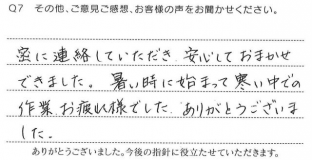 Q7 その他、ご意見ご感想、お客様の声をお聞かせください。
密に連絡していただき 安心しておまかせ
できました。暑い時に始まって寒い中での
作業 お疲れ様でした。ありがとうございま
した。
ありがとうございました。今後の指針に役立たせていただきます。